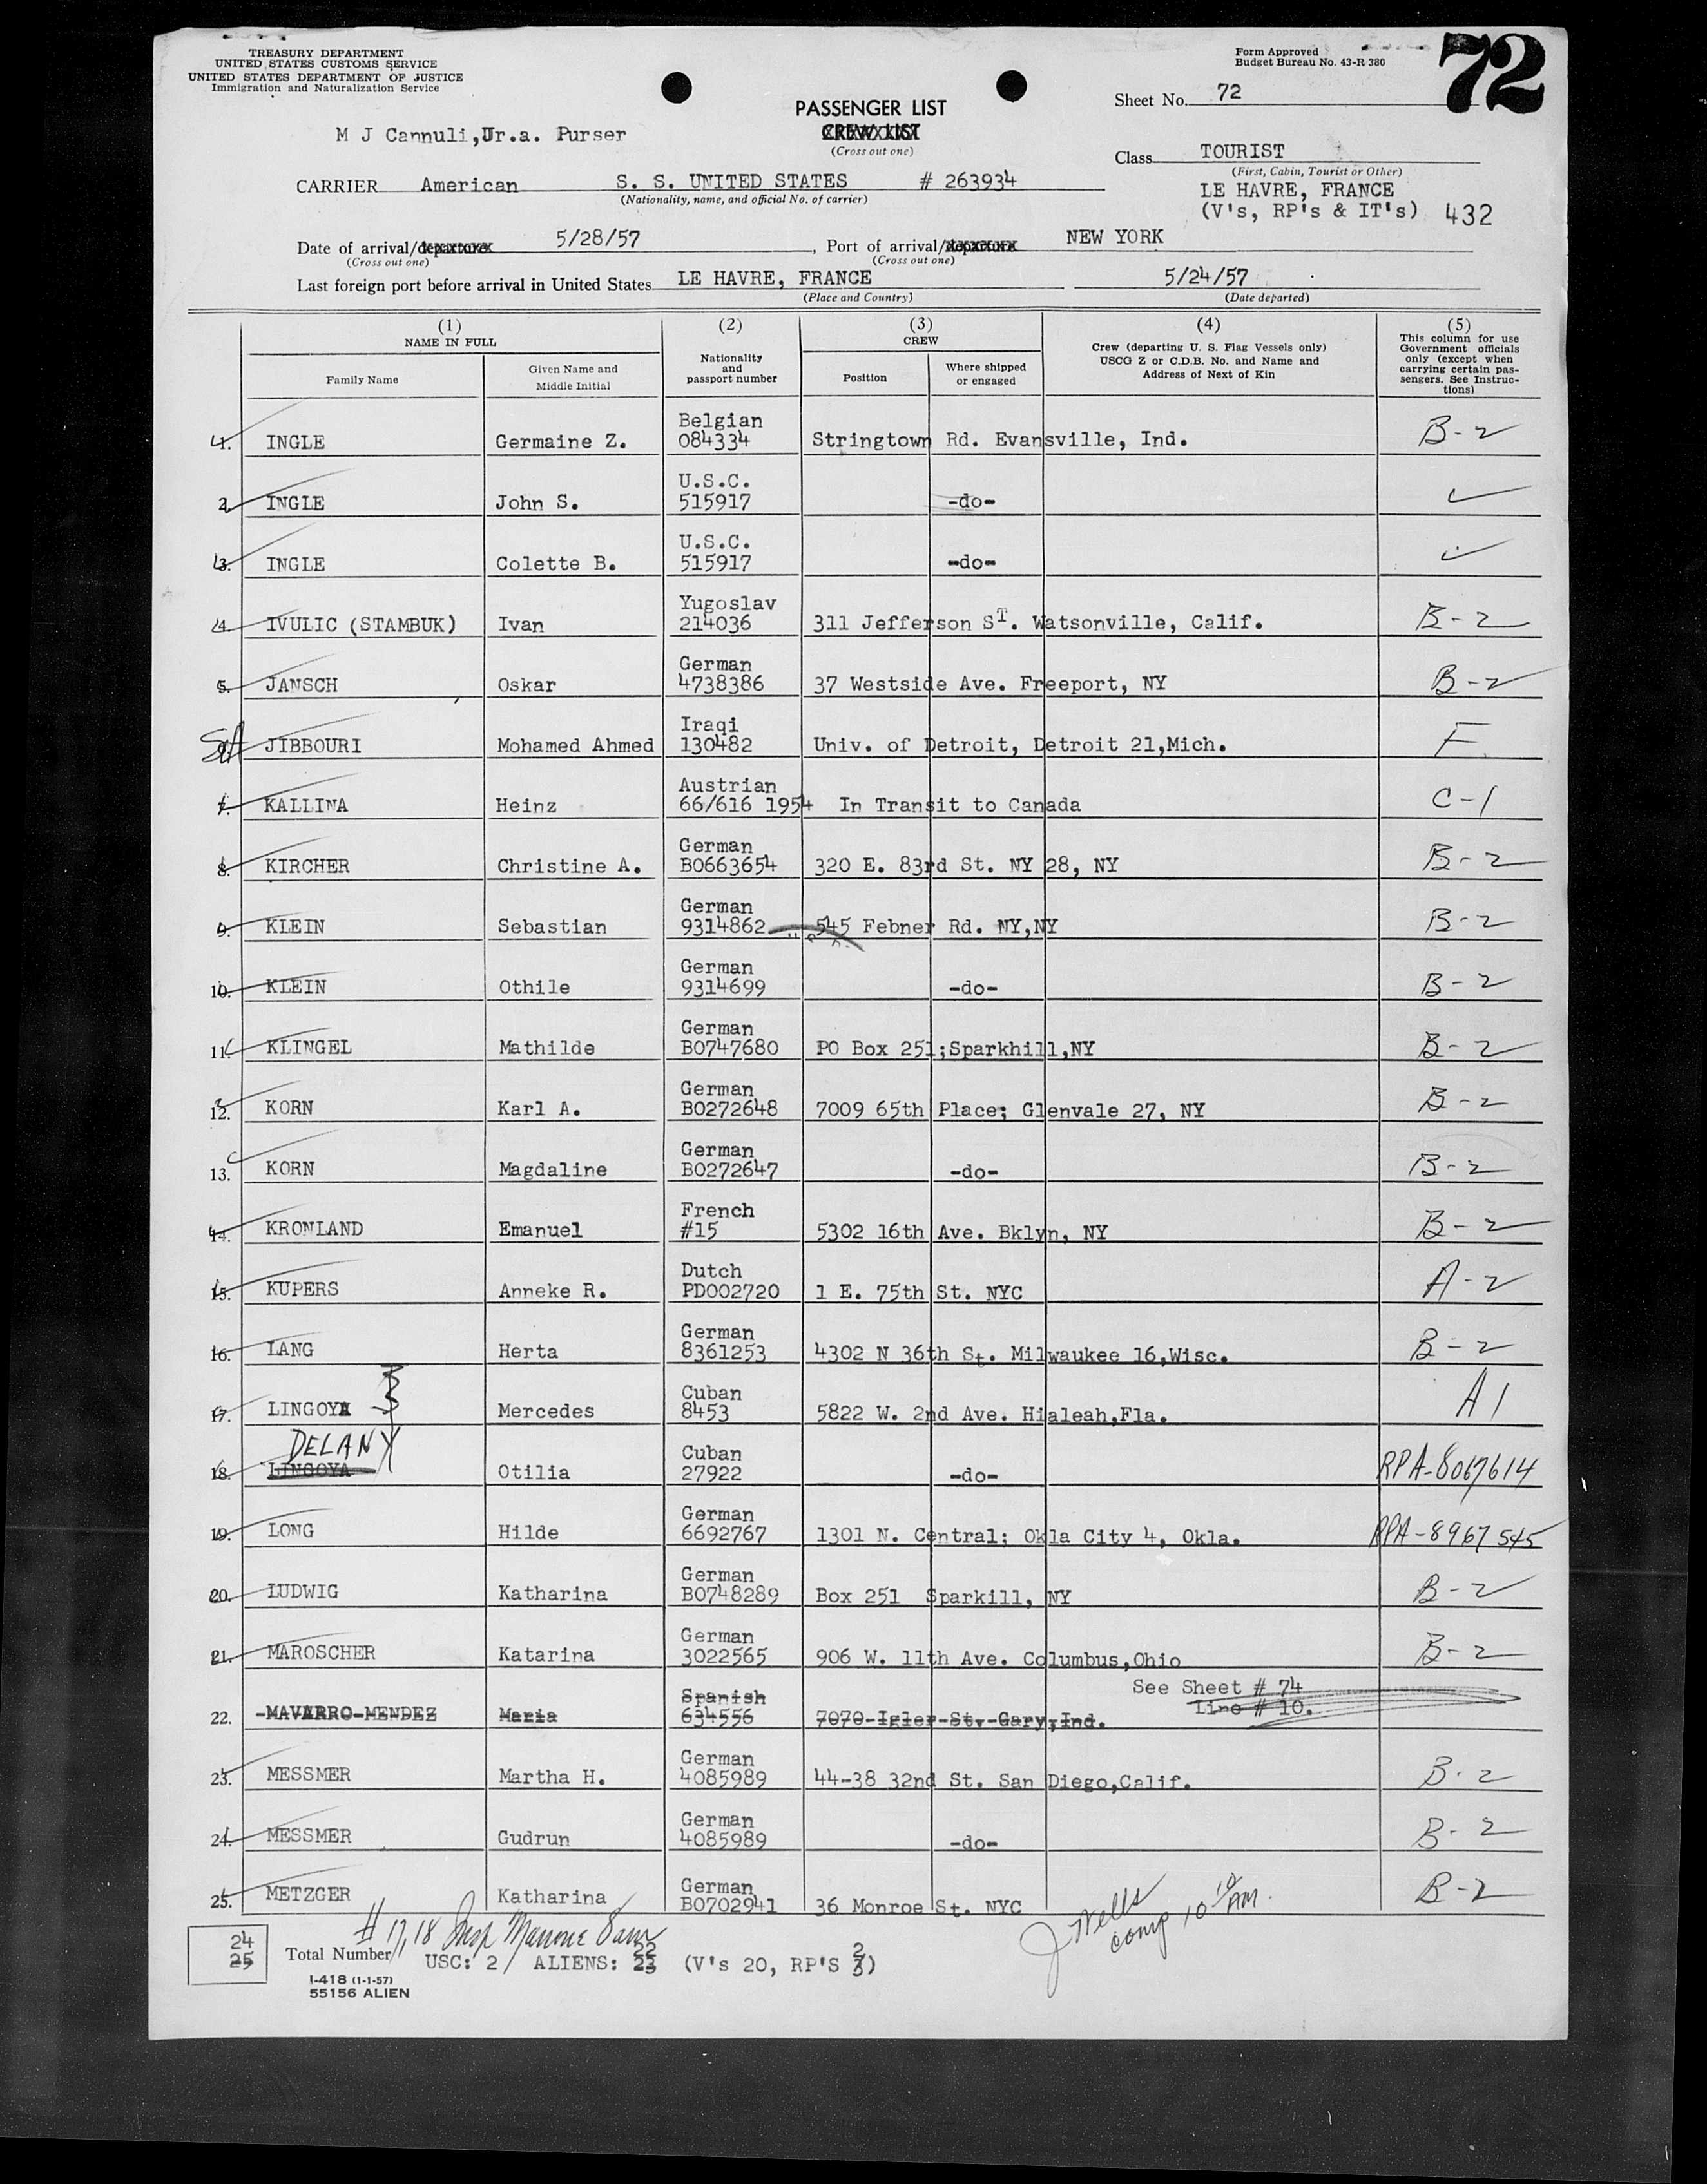 TREASURY DEPARTMENT
UNITED STATES CUSTOMS SERVICE
UNITED STATES DEPARTMENT OF JUSTICE
Immigration and Naturalization Service
Form Approved
Budget Bureau No. 43-R 380
72
Sheet No. 72
PASSENGER LIST
CREW LIST
(Cross out one)
M J Cannuli,Jr.a. Purser
Class TOURIST
(First, Cabin, Tourist or Other)
CARRIER American S. S. UNITED STATES # 263934
(Nationality, name, and official No. of carrier)
LE HAVRE, FRANCE
(V's, RP's & IT's) 432
Date of arrival/departure 5/28/57, Port of arrival/departure NEW YORK
(Cross out one) (Cross out one)
Last foreign port before arrival in United States LE HAVRE, FRANCE 5/24/57
(Place and Country) (Date departed)
(1) NAME IN FULL
Family Name
Given Name and Middle Initial
(2)
Nationality and passport number
(3) CREW
Position
Where shipped or engaged
(4)
Crew (departing U. S. Flag Vessels only)
USCG Z or C.D.B. No. and Name and
Address of Next of Kin
(5)
This column for use
Government officials
only (except when
carrying certain pas-
sengers. See Instruc-
tions)
1. INGLE Germaine Z. Belgian 084334 Stringtown Rd. Evansville, Ind. B-2
2. INGLE John S. U.S.C. 515917 -do-
3. INGLE Colette B. U.S.C. 515917 -do-
4. IVULIC (STAMBUK) Ivan Yugoslav 214036 311 Jefferson ST. Watsonville, Calif. B-2
5. JANSCH Oskar German 4738386 37 Westside Ave. Freeport, NY B-2
JIBBOURI Mohamed Ahmed Iraqi 130482 Univ. of Detroit, Detroit 21,Mich. F
7. KALLINA Heinz Austrian 66/616 1954 In Transit to Canada C-1
8. KIRCHER Christine A. German B0663654 320 E. 83rd St. NY 28, NY B-2
9. KLEIN Sebastian German 9314862 545 Febner Rd. NY,NY B-2
10. KLEIN Othile German 9314699 -do- B-2
11. KLINGEL Mathilde German B0747680 PO Box 251;Sparkhill,NY B-2
12. KORN Karl A. German B0272648 7009 65th Place; Glenvale 27, NY B-2
13. KORN Magdaline German B0272647 -do- B-2
14. KRONLAND Emanuel French #15 5302 16th Ave. Bklyn, NY B-2
15. KUPERS Anneke R. Dutch PD002720 1 E. 75th St. NYC A-2
16. LANG Herta German 8361253 4302 N 36th St. Milwaukee 16,Wisc. B-2
17. LINGOYA Mercedes Cuban 8453 5822 W. 2nd Ave. Hialeah,Fla. A1
DELANY
18. LINGOYA Otilia Cuban 27922 -do- RPA-8067614
19. LONG Hilde German 6692767 1301 N. Central; Okla City 4, Okla. RPA-8967545
20. LUDWIG Katharina German B0748289 Box 251 Sparkill, NY B-2
21. MAROSCHER Katarina German 3022565 906 W. 11th Ave. Columbus,Ohio B-2
See Sheet # 74
Line # 10.
22. -MAVARRO-MENDEZ Maria Spanish 634556 7070-Igler-St.-Gary,Ind.
23. MESSMER Martha H. German 4085989 44-38 32nd St. San Diego,Calif. B-2
24. MESSMER Gudrun German 4085989 -do- B-2
25. METZGER Katharina German B0702941 36 Monroe St. NYC B-2
# 17,18 Insp
J Wells
comp 10 10 AM.
24
25
Total Number USC: 2/ ALIENS: 22 23 (V's 20, RP'S 2 3)
I-418 (1-1-57)
55156 ALIEN